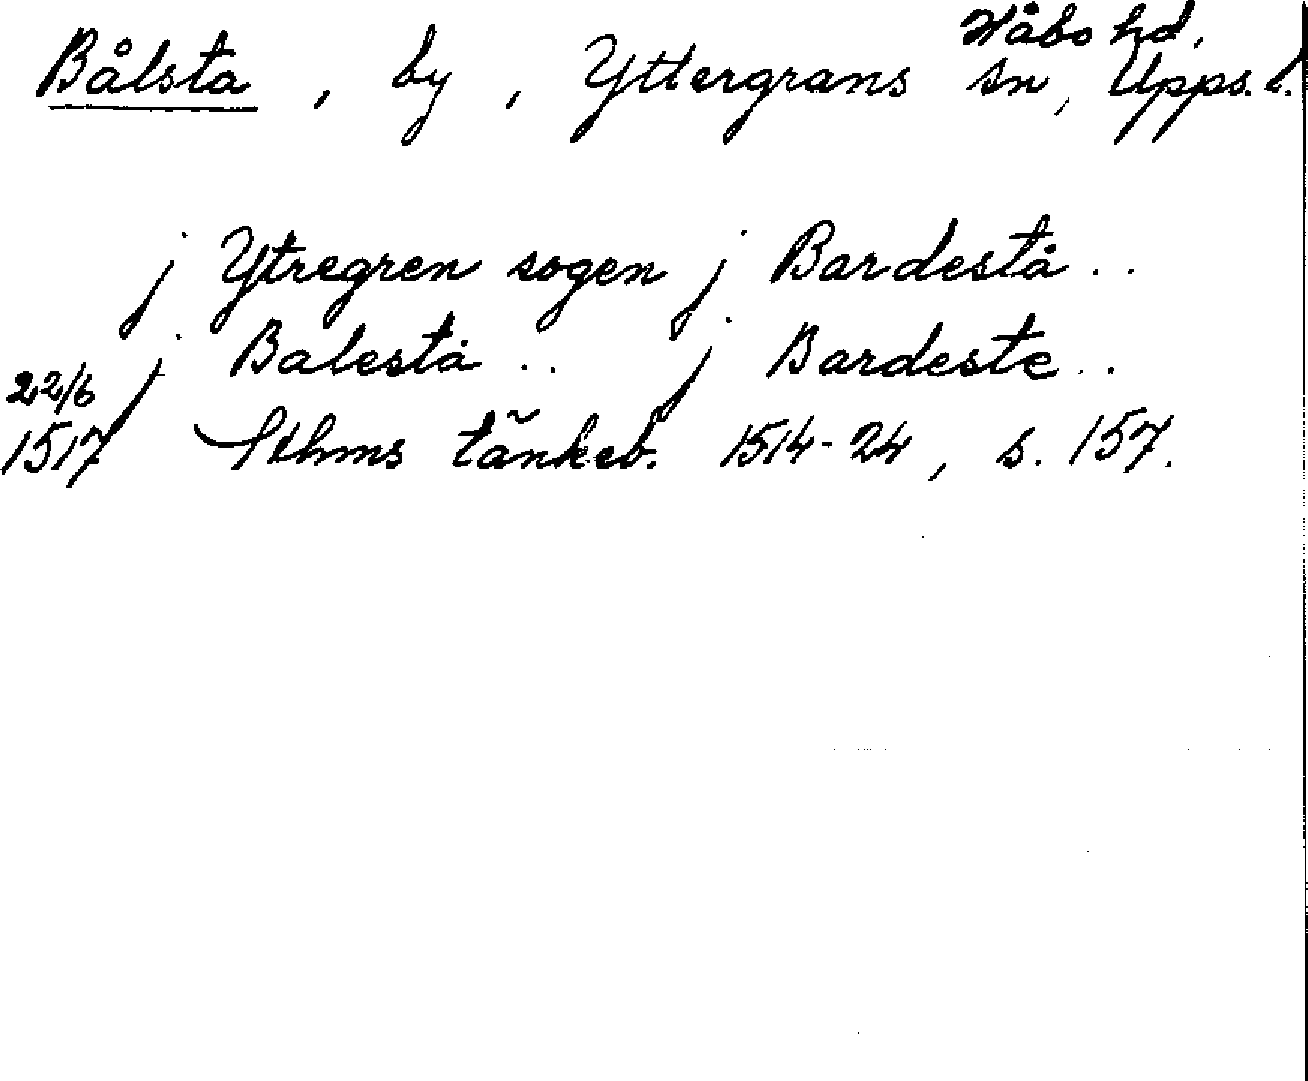 Håbo hd,
Bålsta, by, Yttergrans sn, Upps. l.
j Ytregren sogen j Bardestå..
j Balestå.. j Bardeste..
22/6
1517 Sthms tänkeb. 1514-24, s. 157.